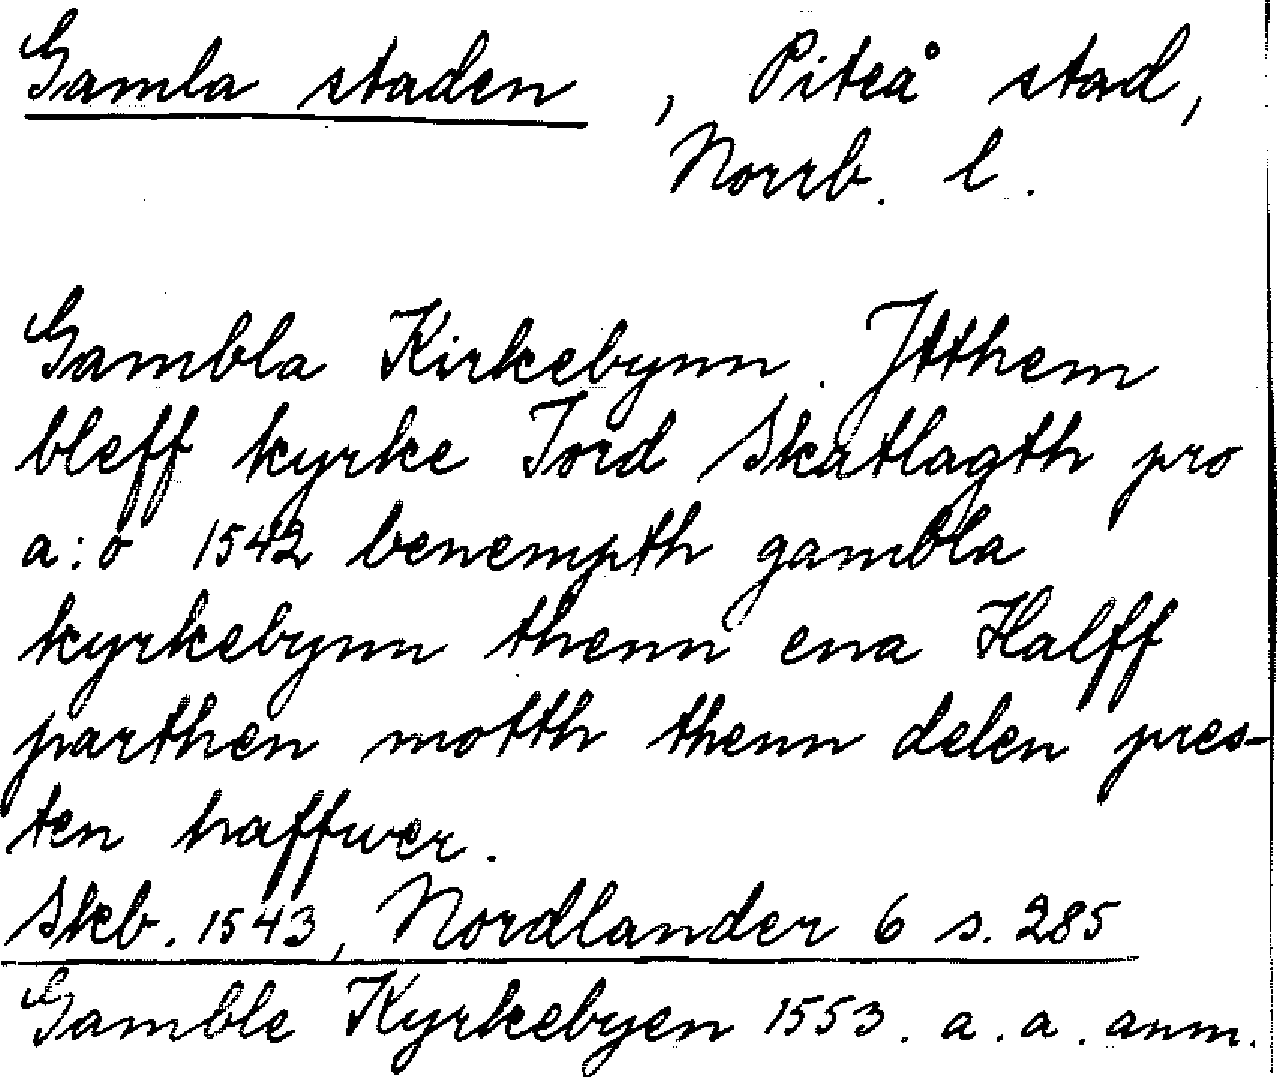 Gamla staden, Piteå stad,
Norrb. l.
Gambla Kirkebynn. Jtthem
bleff kyrke Jord Skatlagth pro
a:o 1542 benempth gambla
kyrkebynn thenn ena Halff
parthen motth thenn delen pres-
ten haffwer.
Skb. 1543, Nordlander 6 s. 285
Gamble Kyrkebyen 1553. a.a. anm.